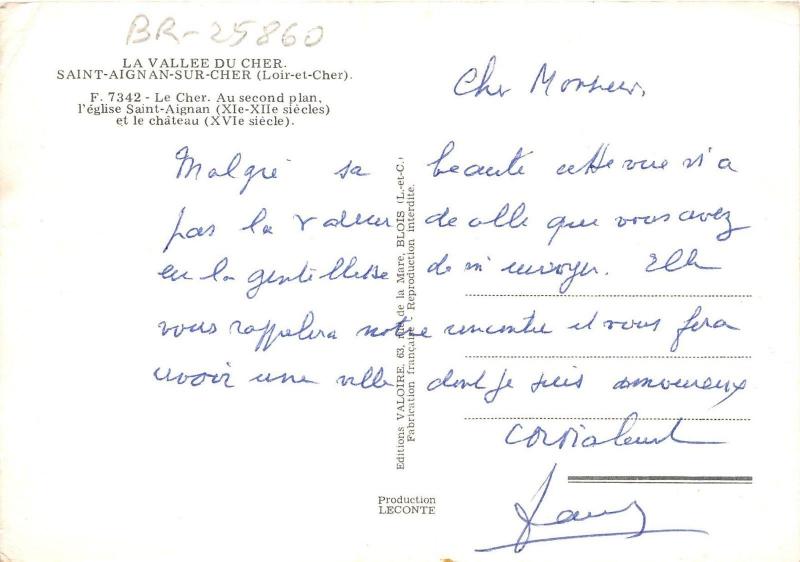 BR-25860
LA VALLEE DU CHER.
SAINT-AIGNAN-SUR-CHER (Loir-et-Cher).
F. 7342 - Le Cher. Au second plan,
l'église Saint-Aignan (XIe-XIIe siècles)
et le château (XVIe siècle).
Cher Monsieur,
Malgré sa beauté cette vue n'a
pas la valeur de celle que vous avez
eu la gentillesse de m'envoyer. Elle
vous rappelera notre rencontre et vous fera
revoir une ville dont je suis amoureux
Cordialement
Editions VALOIRE, 63, rue de la Mare, BLOIS (L.-et-C.)
Fabrication française - Reproduction interdite.
Production
LECONTE